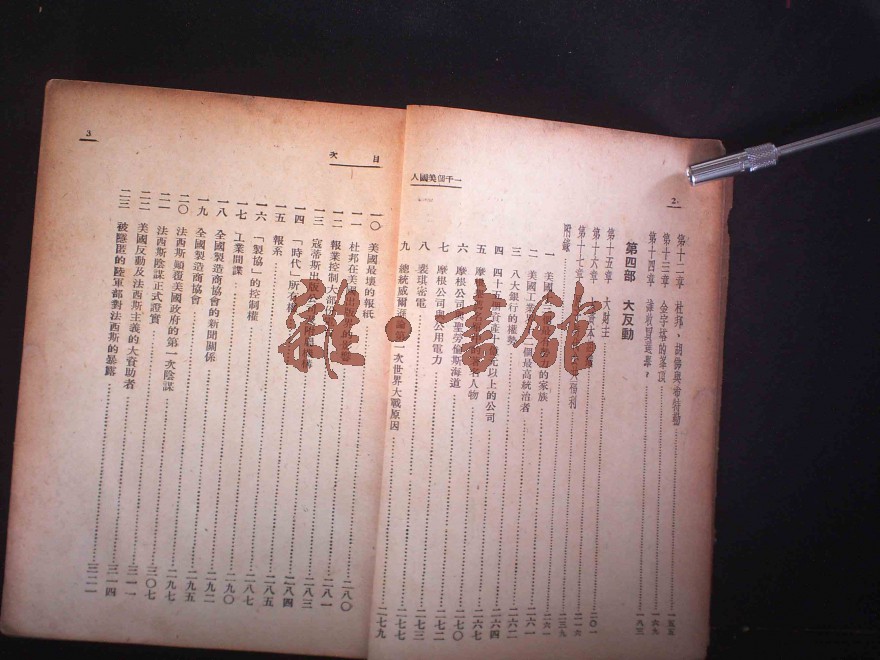 一千個美國人
2
第十二章 杜邦、胡佛與希特勒 一五五
第十三章 金字塔的峯頂 一六九
第十四章 誰敢買選票？ 一八三
第四部 大互動
第十五章 大財主 二〇一
第十六章 二一六
第十七章 福利 二三九
附錄 二六一
一 美國 的家族 二六一
二 美國工業界 個最高統治者 二六一
三 八大銀行的權勢 二六二
四 四十二家資產十億元以上的公司 二六四
五 摩 人物 二六七
六 摩根公司 聖勞倫斯海道 二七〇
七 摩根公司與公用電力 二七二
八 裴琪密電 二七三
九 總統威爾遜論第一次世界大戰原因 二七七
二七九
目次
3
一〇 美國最壞的報紙 二八〇
一一 杜邦在美國出版界的 二八一
一二 報業控制大部份
一三 寇蒂斯出版公司 二八三
一四 「時代」所有權 二八四
一五 報系 二八五
一六 「製協」的控制權 二八七
一七 工業間諜 二九〇
一八 全國製造商協會的新聞關係 二九二
一九 全國製造商協會 二九五
二〇 法西斯顛覆美國政府的第一次陰謀 二九七
二一 法西斯陰謀正式證實 三〇七
二二 美國反動及法西斯主義的大資助者 三一一
二三 被隱匿的陸軍部對法西斯的暴露 三一四
三二一
雜·書館